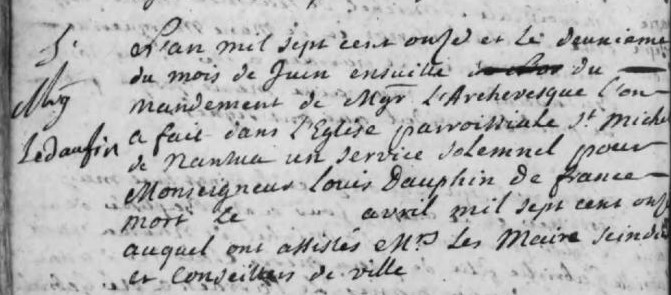 S.
Mgr
Ledaufin
L'an mil sept cent onse et le deuxieme
du mois de Juin ensuitte du
mandement de Mgr L'Archevesque l'on
a fait dans l'Eglise parroissiale st Michel
de Nantua un service solemnel pour
Monseigneur Louis Dauphin de france
mort le avril mil sept cent onse
auquel ont assistés Mrs Les Maire scindic
et Conseillers de ville